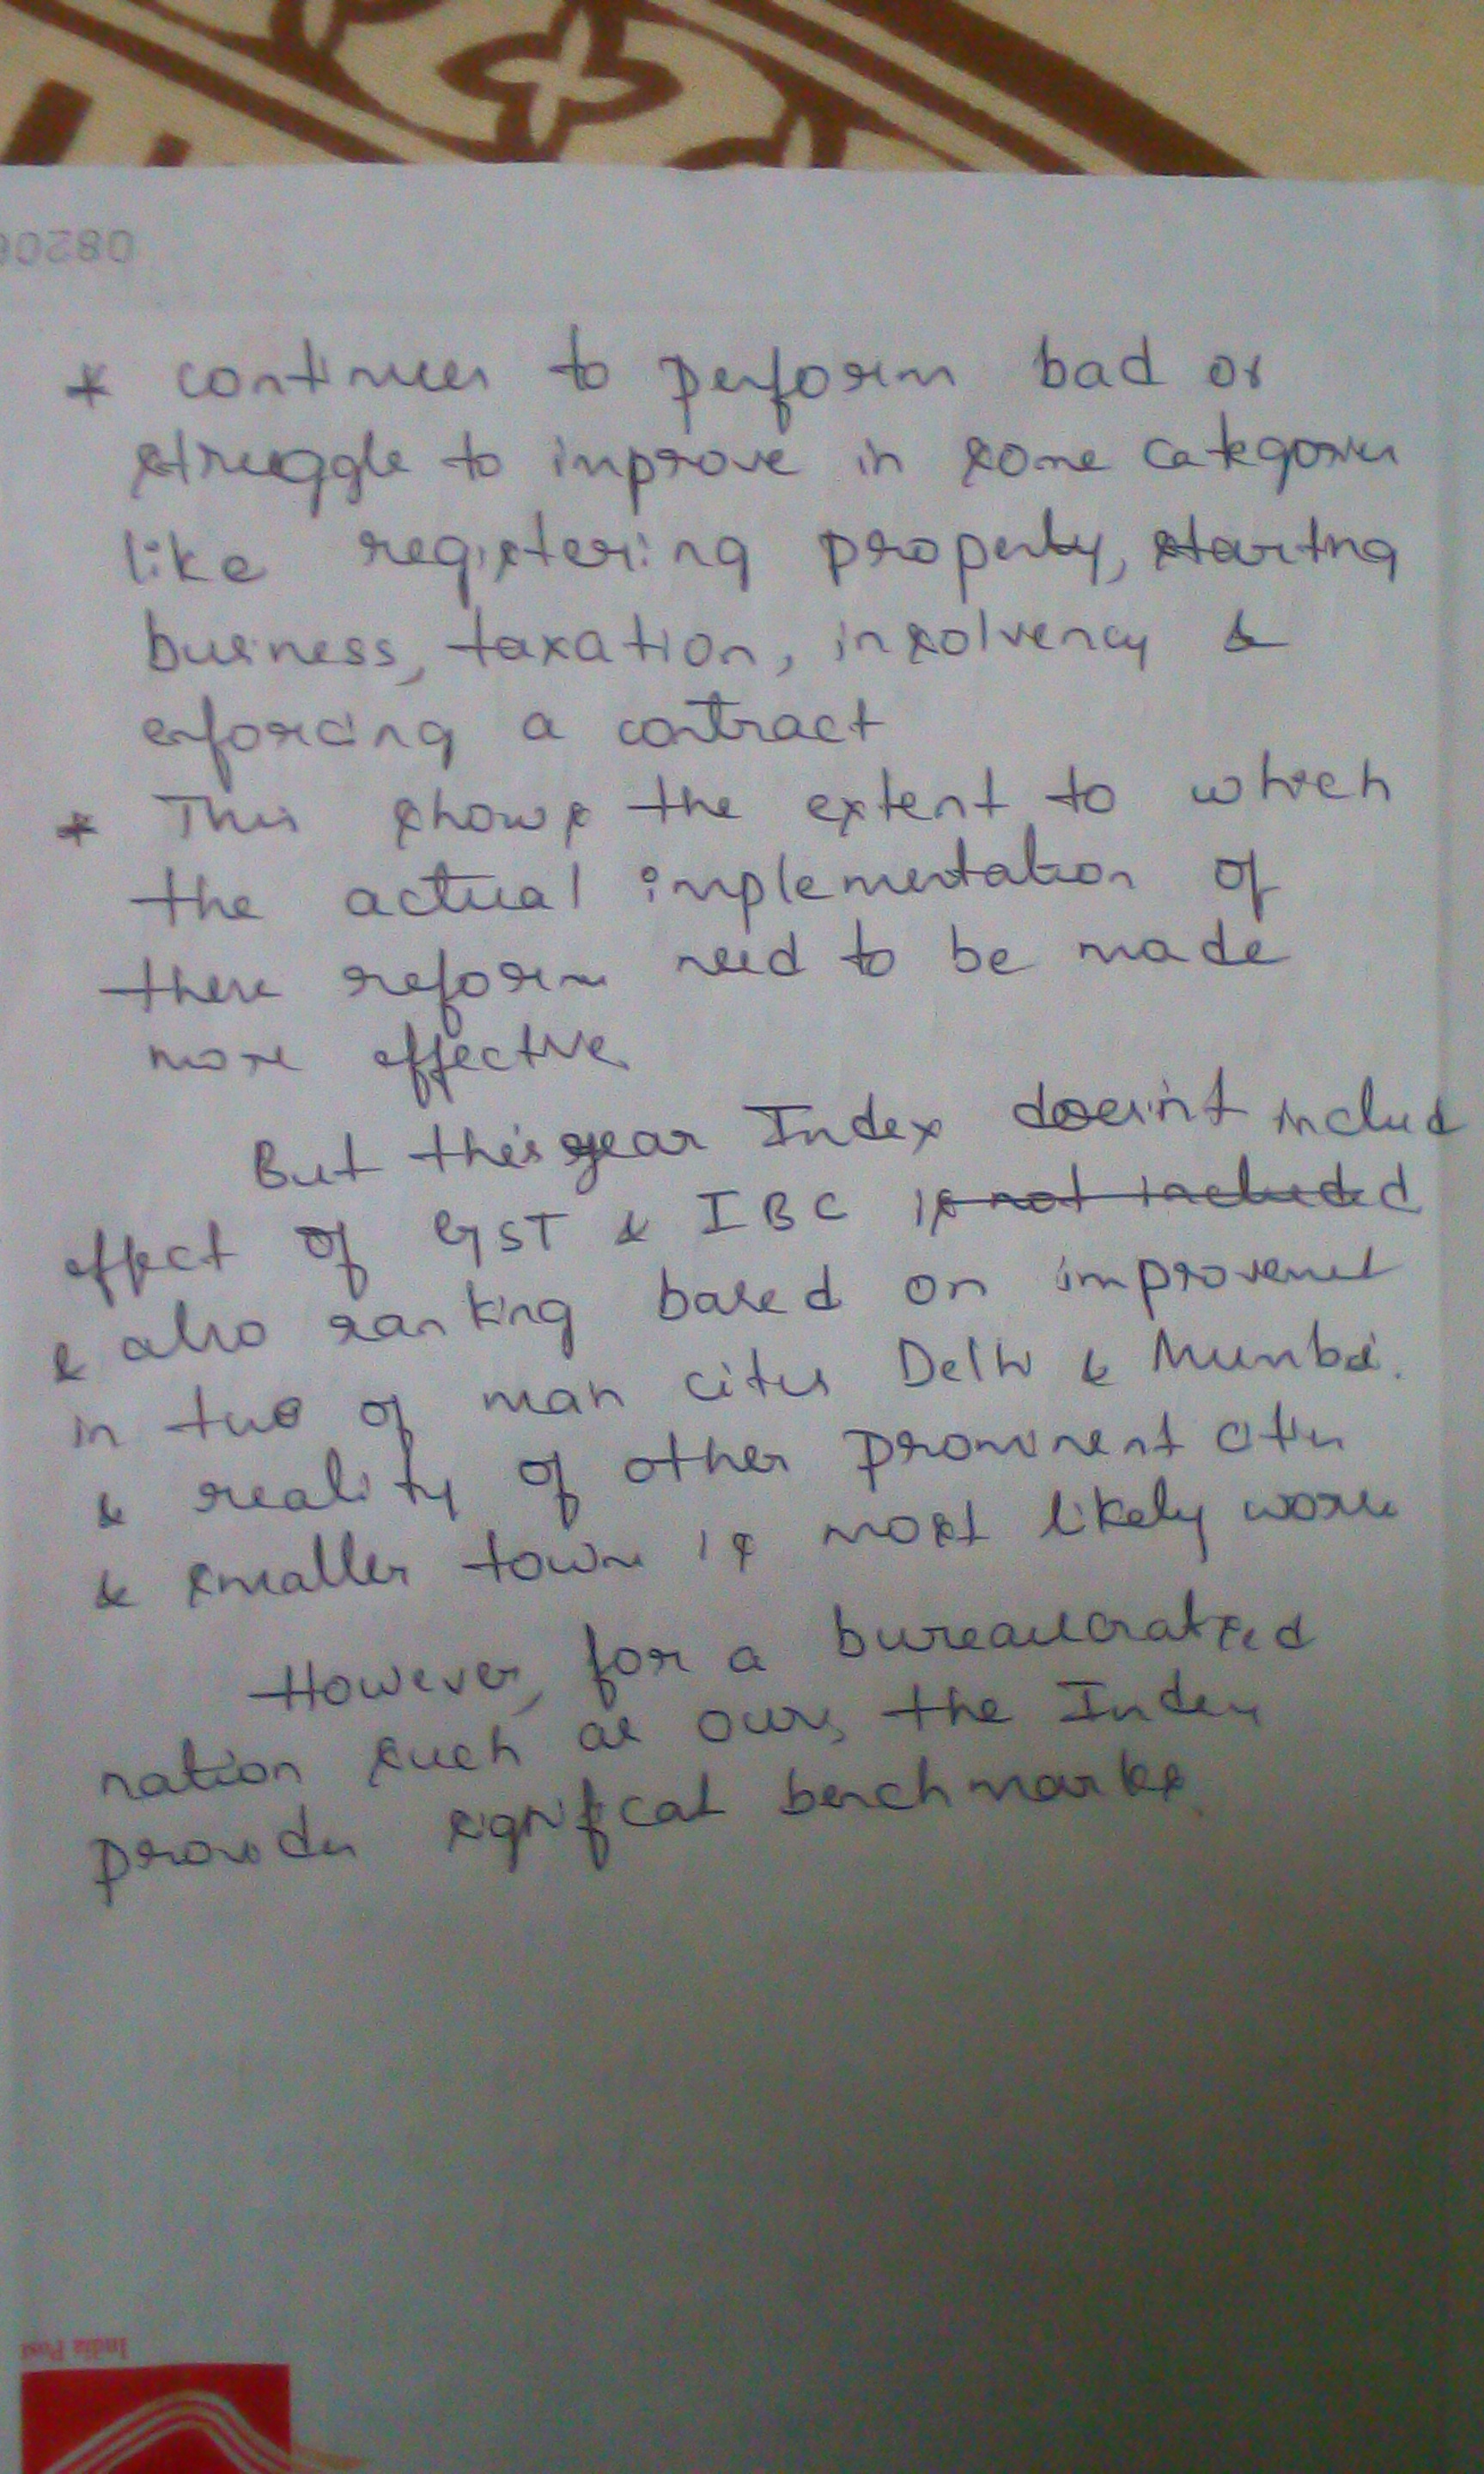 0820
* continues to perform bad or
struggle to improve in some categories
like registering property, starting
business, taxation, insolvency &
enforcing a contract
* This shows the extent to which
the actual implementation of
these reforms need to be made
more effective
But this year Index doesn't includ
effect of GST & IBC is not included
& also ranking based on improvement
in two of man cities Delhi & Mumbai.
& reality of other prominent cities
& smaller towns is most likely worse
However, for a bureaucratized
nation such as ours, the Index
provides significat benchmarks.
India Post